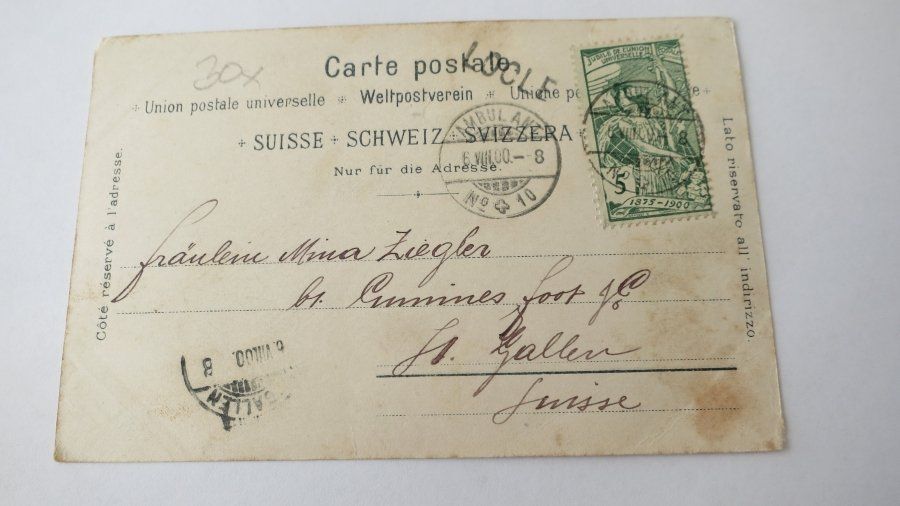 30x
Carte postale
LOCLE
Union postale universelle + Weltpostverein + Unione po
+ SUISSE + SCHWEIZ + SVIZZERA
Nur für die Adresse.
AMBULANT
6.VIII.00.-8
No 10
JUBILÉ DE L'UNION
UNIVERSELLE
5
1875-1900
Côté réservé à l'adresse.
Lato riservato all' indirizzo.
Fräulein Mina Ziegler
St. Gallen
Suisse
6.VIII.00. 8
GALLEN